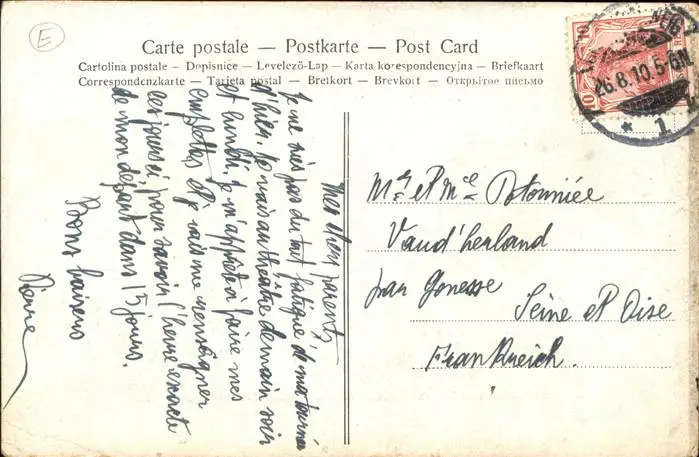 E
Carte postale — Postkarte — Post Card
Cartolina postale – Dopisnice – Levelező-Lap – Karta korespondencyjna – Briefkaart
Correspondenzkarte – Tarjeta postal – Bretkort – Brevkort – Открытое письмо
10
10
26.8.10.5-6N
* 1
Mes chers parents
Je ne suis pas du tout fatigué d' ma tournée
d'hier. Je vais au théâtre demain soir
et lundi. Je m'apprête à faire mes
emplettes et je vais me renseigner
ces jours ci, pour savoir l'heure exacte
de mon départ dans 15 jours.
Bons baisers
Pierre
Mr et Mme
Vaud'herland
par Gonesse
Seine et Oise
Frankreich.